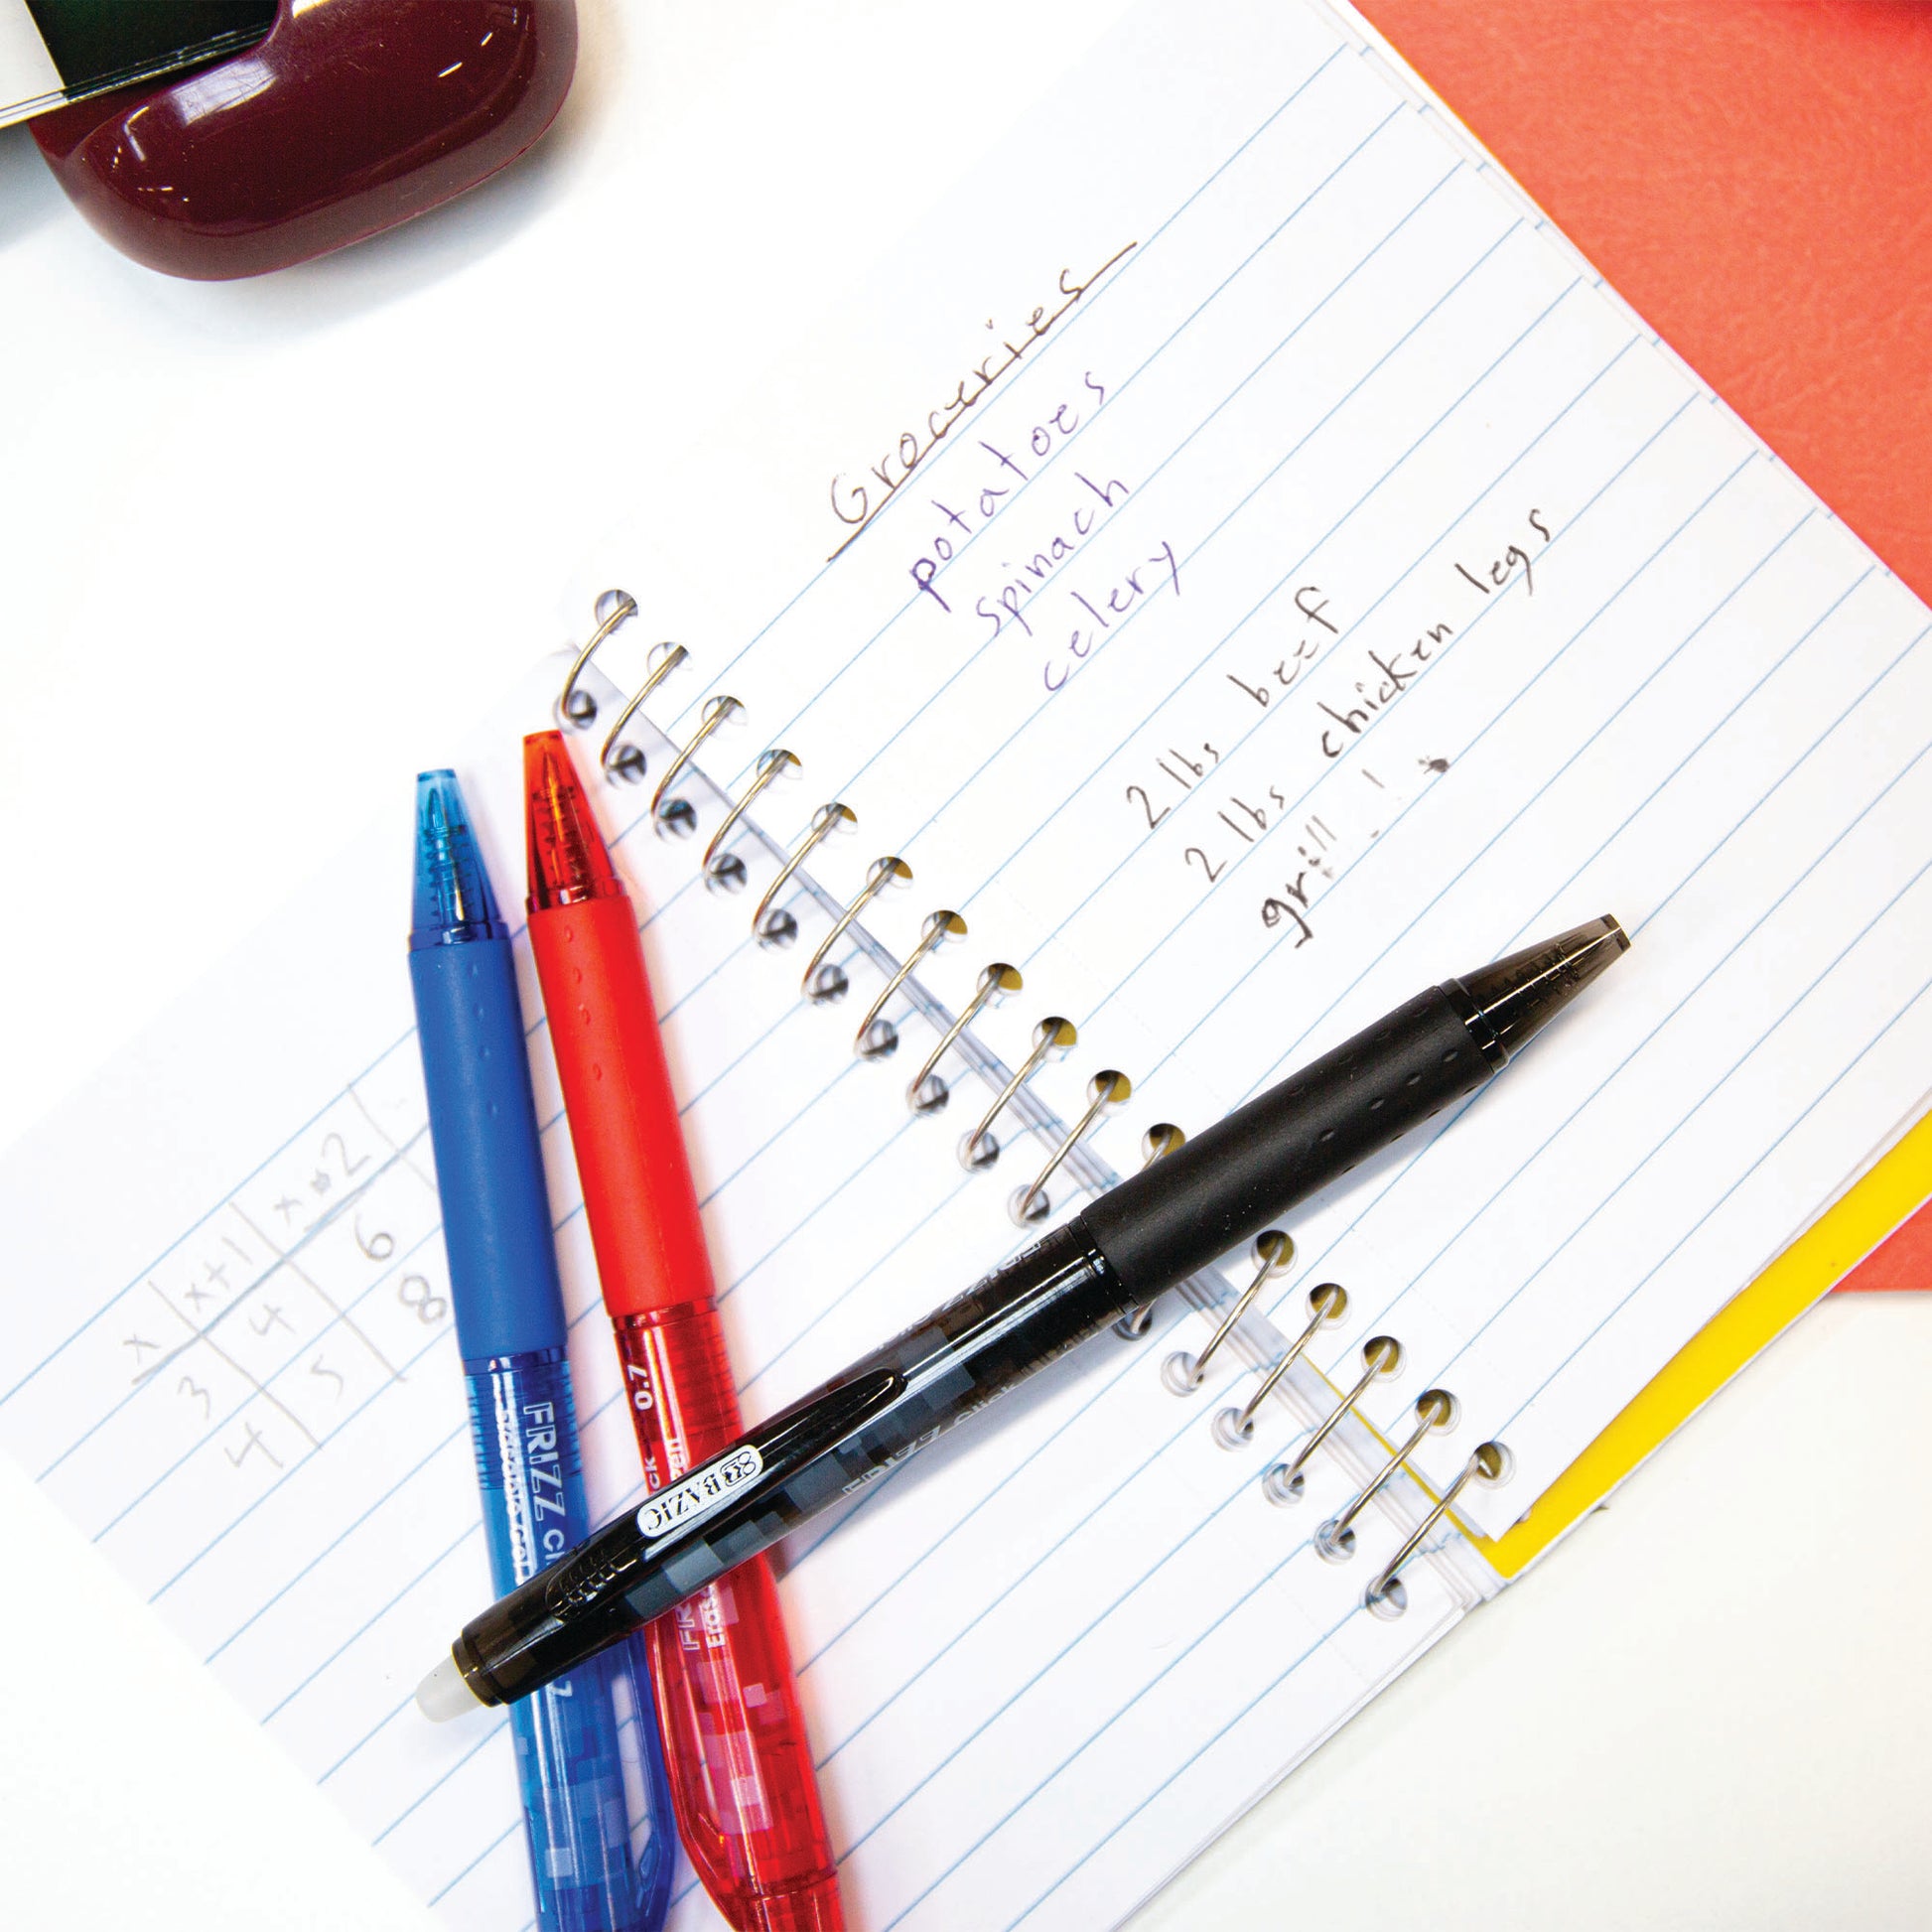 Groceries
potatoes
spinach
celery
2 lbs beef
2 lbs chicken legs
grill!
x x+1 x•2
3 4 6
4 5 8
FRIZZ
0.7
BAZIC